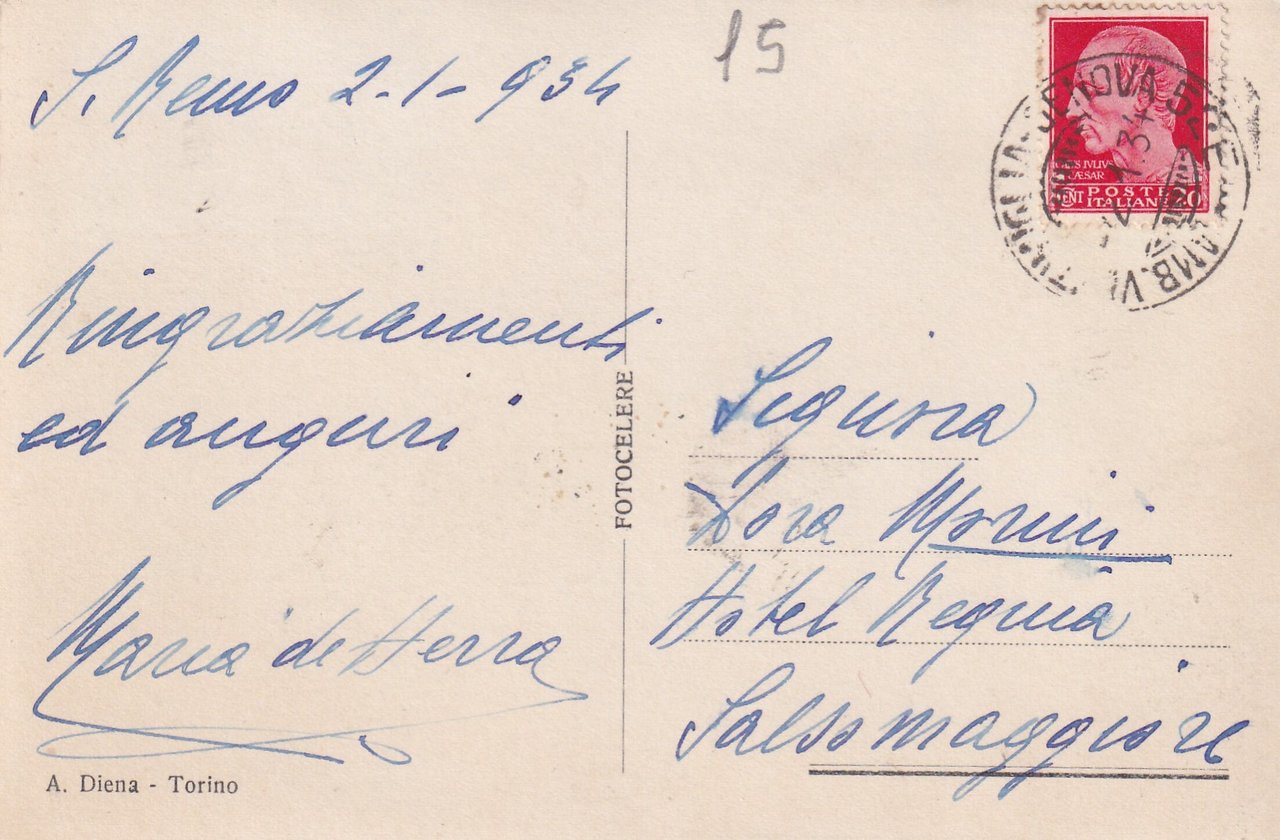 S. Remo 2-1-934
15
Ringraziamenti
ed auguri
Maria de Herra
A. Diena - Torino
FOTOCELERE
IVLIVS
CÆSAR
CENT POSTE
ITALIANE 20
GENOVA 52
AMB.
1.34
Signora
Dora Morini
Hotel Regina
Salsomaggiore